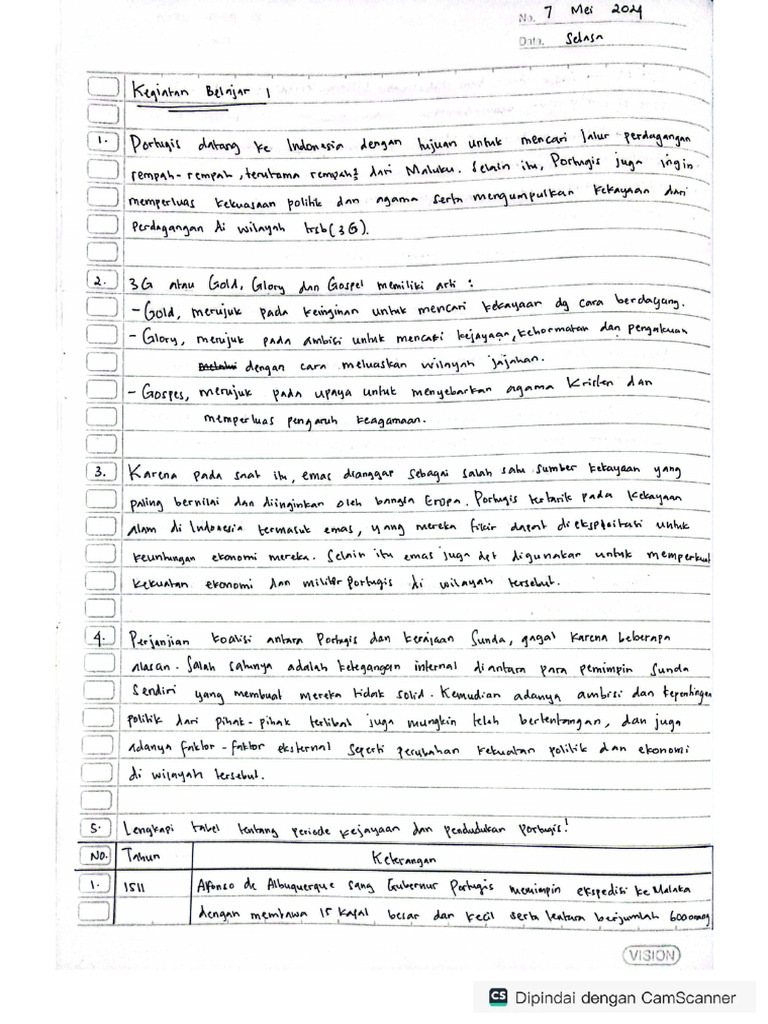 No. 7 Mei 2024
Date. Selasa
Kegiatan Belajar 1
1. Portugis datang ke Indonesia dengan tujuan untuk mencari jalur perdagangan
rempah-rempah, terutama rempah² dari Maluku. Selain itu, Portugis juga ingin
memperluas kekuasaan politik dan agama serta mengumpulkan kekayaan dari
perdagangan di wilayah trsb (3G).
2. 3G atau Gold, Glory dan Gospel memiliki arti :
- Gold, merujuk pada keinginan untuk mencari kekayaan dg cara berdagang.
- Glory, merujuk pada ambisi untuk mencari kejayaan, kehormatan dan pengakuan
dengan cara meluaskan wilayah jajahan.
- Gospes, merujuk pada upaya untuk menyebarkan agama Kristen dan
memperluas pengaruh keagamaan.
3. Karena pada saat itu, emas dianggap sebagai salah satu sumber kekayaan yang
paling bernilai dan diinginkan oleh bangsa Eropa. Portugis tertarik pada kekayaan
alam di Indonesia termasuk emas, yang mereka fikir dapat di eksploitasi untuk
keuntungan ekonomi mereka. Selain itu emas juga dpt digunakan untuk memperkuat
kekuatan ekonomi dan militer Portugis di wilayah tersebut.
4. Perjanjian koalisi antara Portugis dan kerajaan Sunda, gagal karena beberapa
alasan. Salah satunya adalah ketegangan internal diantara para pemimpin Sunda
sendiri yang membuat mereka tidak solid. Kemudian adanya ambisi dan kepentingan
politik dari pihak-pihak terlibat juga mungkin telah bertentangan, dan juga
adanya faktor-faktor eksternal seperti perubahan kekuatan politik dan ekonomi
di wilayah tersebut.
5. Lengkapi tabel tentang periode kejayaan dan pendudukan Portugis!
No. Tahun Keterangan
1. 1511 Alfonso de Albuquerque sang Gubernur Portugis memimpin ekspedisi ke Malaka
dengan membawa 15 kapal besar dan kecil serta tentara berjumlah 600 orang
VISION
CS Dipindai dengan CamScanner